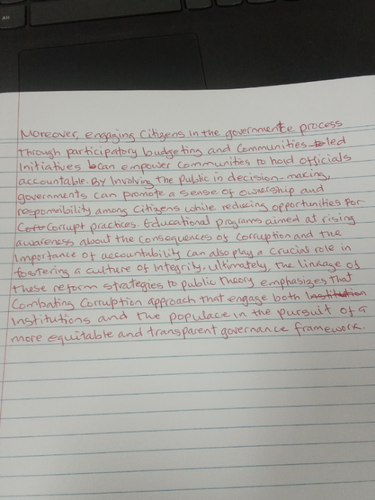 Moreover, engaging Citizens in the governmente process
Through participatory budgeting and Communities-led
Initiatives can empower Communities to hold officials
accountable. By Involving The Public in decision-making,
governments can promote a sense of ownership and
responsibility among Citizens while reducing opportunities For
Corrupt practices. Educational programs aimed at rising
awareness about the Consequences of Corruption and the
Importance of accountability can also play a Crucial role in
fostering a culture of Integrity. Ultimately, The linkage of
These reform strategies to public Theory emphasizes That
Combating Corruption approach that engage both Institution
Institutions and The populace in the pursuit of a
more equitable and transparent governance framework.